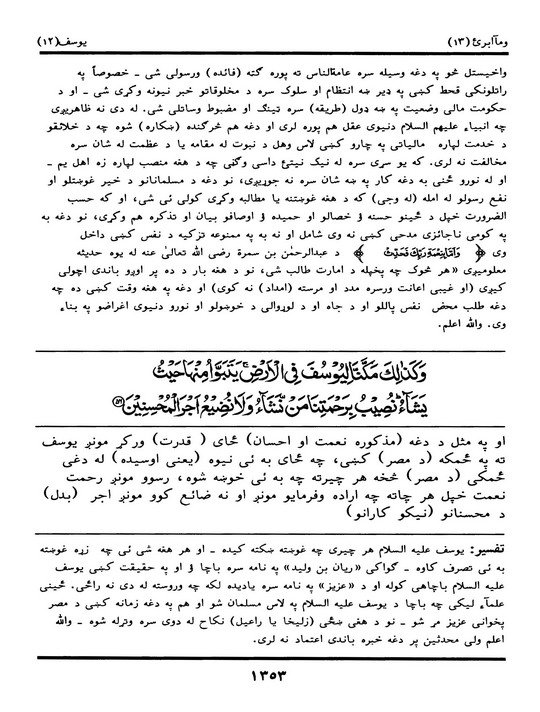 ومآأبرئ (١٣)
يوسف (١٢)
واخيستل څو په دغه وسيله سره عامةالناس ته پوره گته (فائده) ورسولى شى ـ خصوصاً په
راتلونكى قحط كښى په ډير ښه انتظام او سلوك سره د مخلوقاتو خبر نيونه وكړى شى ـ او د
حكومت مالى وضعيت په ښه ډول (طريقه) سره ټينگ او مضبوط وساتلى شى. له دى نه ظاهريږى
چه انبياء عليهم السلام دنيوى عقل هم پوره لرى او دغه هم څرگنده (ښكاره) شوه چه د خلائقو
د خدمت لپاره مالياتى په چارو كښى لاس وهل د نبوت له مقامه يا د عظمت له شان سره
مخالفت نه لرى. كه يو سړى سره له نيك نيتئ داسى وگڼى چه د هغه منصب لپاره زه اهل يم ـ
او له نورو ځنى به دغه كار په ښه شان سره نه جوړيږى، نو دغه د مسلمانانو د خير غوښتلو او
نفع رسولو له امله (له وجى) كه د هغه غوښتنه يا مطالبه وكړى كولى ئى شى، او كه حسب
الضرورت خپل د ځينو حسنه ؤ خصالو او حميده ؤ اوصافو بيان او تذكره هم وكړى، نو دغه به
په كومى ناجائزى مدحى كښى نه وى شامل او نه به په ممنوعه تزكيه د نفس كښى داخل
وى ﴿ وَأَمَّا بِنِعْمَةِ رَبِّكَ فَحَدِّثْ ﴾ د عبدالرحمٰن بن سمرة رضى الله تعالىٰ عنه له يوه حديثه
معلوميږى «هر څوك چه پخپله د امارت طالب شى، نو د هغه بار د ده پر اوږو باندى اچولى
كيږى (او غيبى اعانت ورسره مدد او مرسته (امداد) نه كوى) او دغه په هغه وقت كښى ده چه
دغه طلب محض نفس پاللو او د جاه او د لوړوالى د خوښولو او نورو دنيوى اغراضو په بناء
وى. والله اعلم.
وَكَذٰلِكَ مَكَّنَّا لِيُوسُفَ فِي الْاَرْضِ يَتَبَوَّأُ مِنْهَا حَيْثُ
يَشَآءُ نُصِيْبُ بِرَحْمَتِنَا مَنْ نَّشَآءُ وَلَا نُضِيْعُ اَجْرَ الْمُحْسِنِيْنَ ﴿٥٦﴾
او په مثل د دغه (مذكوره نعمت او احسان) ځاى ( قدرت) وركړ مونږ يوسف
ته په ځمكه (د مصر) كښى، چه ځاى به ئى نيوه (يعنى اوسيده) له دغى
ځمكى (د مصر) څخه هر چيرته چه به ئى خوښه شوه، رسوو مونږ رحمت
نعمت خپل هر چاته چه اراده وفرمايو مونږ او نه ضائع كوو مونږ اجر (بدل)
د محسنانو (نيكو كارانو)
تفسير: يوسف عليه السلام هر چيرى چه غوښته ښكته كيده ـ او هر هغه شى ئى چه زړه غوښته
به ئى تصرف كاوه ـ گواكى «ريان بن وليد» په نامه سره باچا ؤ او په حقيقت كښى يوسف
عليه السلام باچاهى كوله او د «عزيز» په نامه سره ياديده لكه چه وروسته له دى نه راځى. ځينى
علمآء ليكى چه باچا د يوسف عليه السلام په لاس مسلمان شو او هم په دغه زمانه كښى د مصر
پخوانى عزيز مړ شو ـ نو د هغى ښځى (زليخا يا راعيل) نكاح له دوى سره وتړله شوه ـ والله
اعلم ولى محدثين پر دغه خبره باندى اعتماد نه لرى.
١٣٥٣